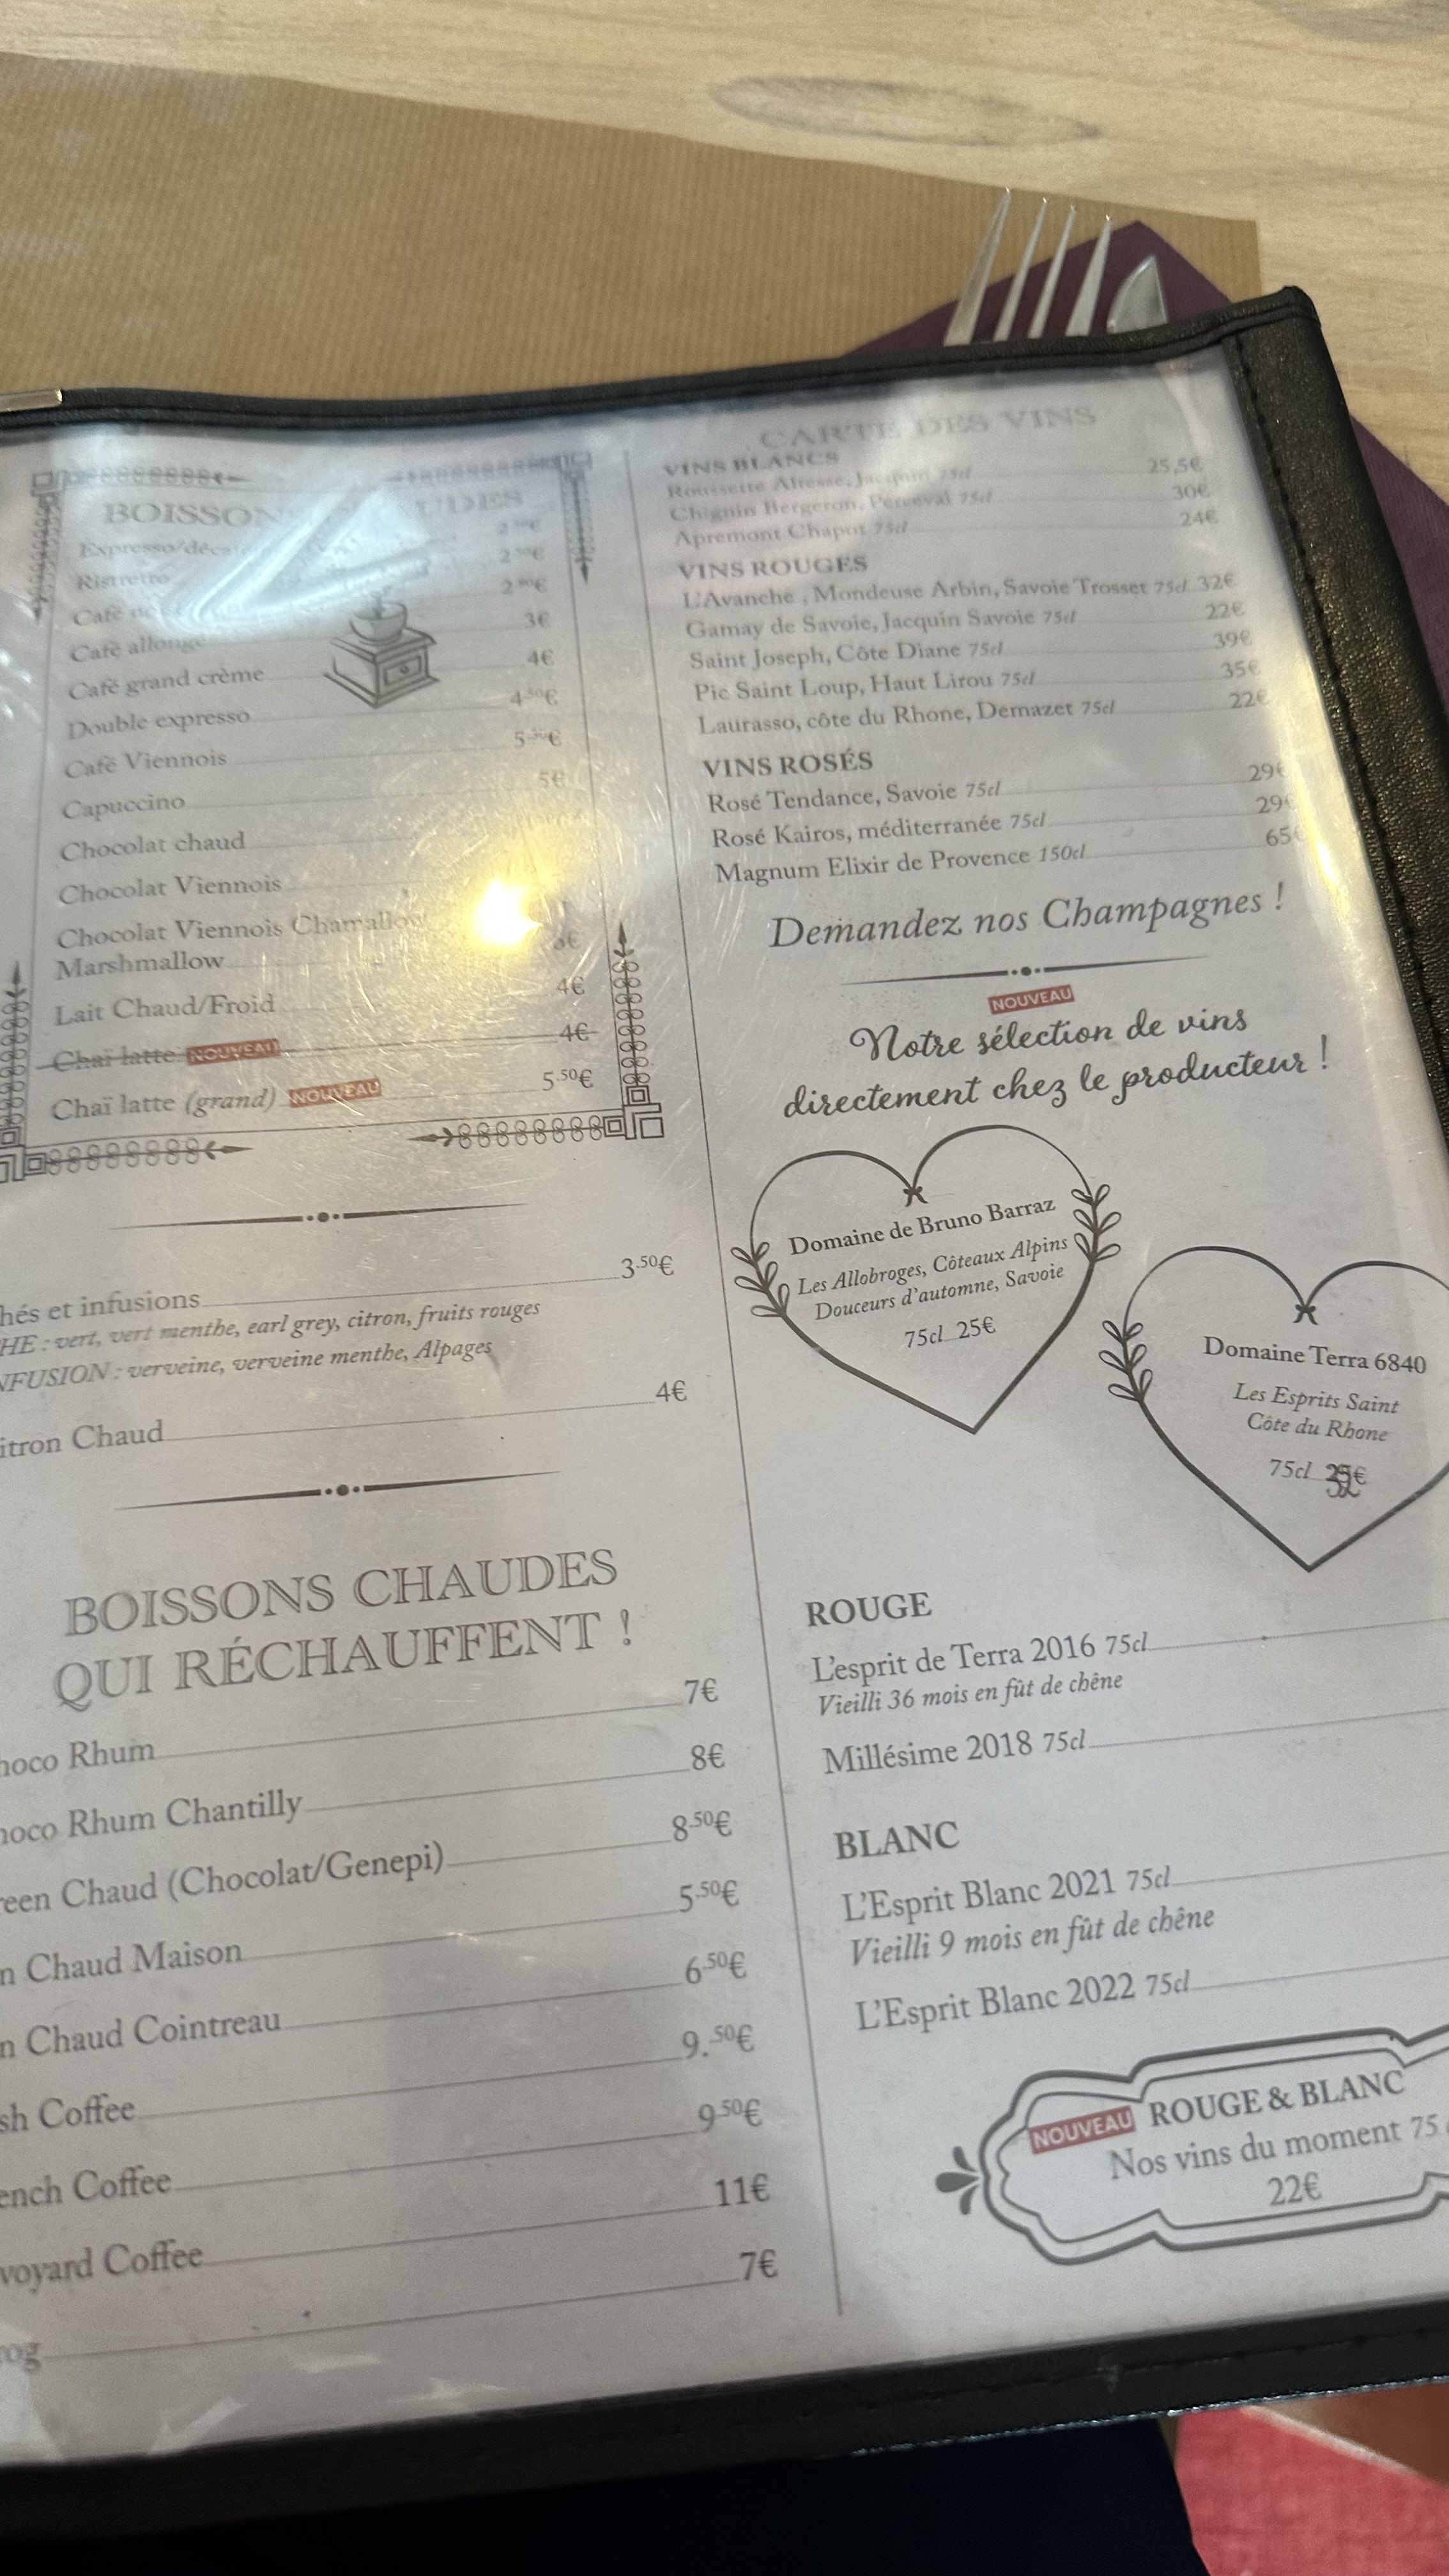 BOISSON UDES
Expresso/déca
Ristretto
Café
Café allongé 3€
Café grand crème 4€
Double expresso 4.50€
Café Viennois
Capuccino 5€
Chocolat chaud
Chocolat Viennois
Chocolat Viennois Chamallow
Marshmallow
Lait Chaud/Froid 4€
Chaï latte NOUVEAU 4€
Chaï latte (grand) NOUVEAU 5.50€
hés et infusions 3.50€
HE : vert, vert menthe, earl grey, citron, fruits rouges
NFUSION : verveine, verveine menthe, Alpages
itron Chaud 4€
BOISSONS CHAUDES
QUI RÉCHAUFFENT !
hoco Rhum 7€
hoco Rhum Chantilly 8€
reen Chaud (Chocolat/Genepi) 8.50€
n Chaud Maison 5.50€
n Chaud Cointreau 6.50€
sh Coffee 9.50€
ench Coffee 9.50€
voyard Coffee 11€
rog 7€
CARTE DES VINS
VINS BLANCS
Roussette Altesse, Jacquin 75cl 25,5€
Chignin Bergeron, Perceval 75cl 30€
Apremont Chapot 75cl 24€
VINS ROUGES
L'Avanche , Mondeuse Arbin, Savoie Trosset 75cl 32€
Gamay de Savoie, Jacquin Savoie 75cl 22€
Saint Joseph, Côte Diane 75cl 39€
Pic Saint Loup, Haut Lirou 75cl 35€
Laurasso, côte du Rhone, Demazet 75cl 22€
VINS ROSÉS
Rosé Tendance, Savoie 75cl 29€
Rosé Kairos, méditerranée 75cl 29€
Magnum Elixir de Provence 150cl 65€
Demandez nos Champagnes !
NOUVEAU
Notre sélection de vins
directement chez le producteur !
Domaine de Bruno Barraz
Les Allobroges, Côteaux Alpins
Douceurs d'automne, Savoie
75cl 25€
Domaine Terra 6840
Les Esprits Saint
Côte du Rhone
75cl
ROUGE
L'esprit de Terra 2016 75cl
Vieilli 36 mois en fût de chêne
Millésime 2018 75cl
BLANC
L'Esprit Blanc 2021 75cl
Vieilli 9 mois en fût de chêne
L'Esprit Blanc 2022 75cl
NOUVEAU ROUGE & BLANC
Nos vins du moment 75
22€